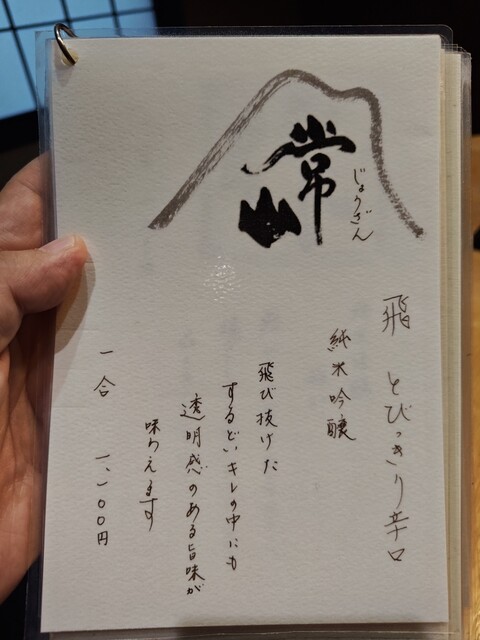 常山
じょうざん
飛 とびっきり辛口
純米吟醸
飛び抜けた
するどいキレの中にも
透明感のある旨味が
味わえます
一合 一、一〇〇円